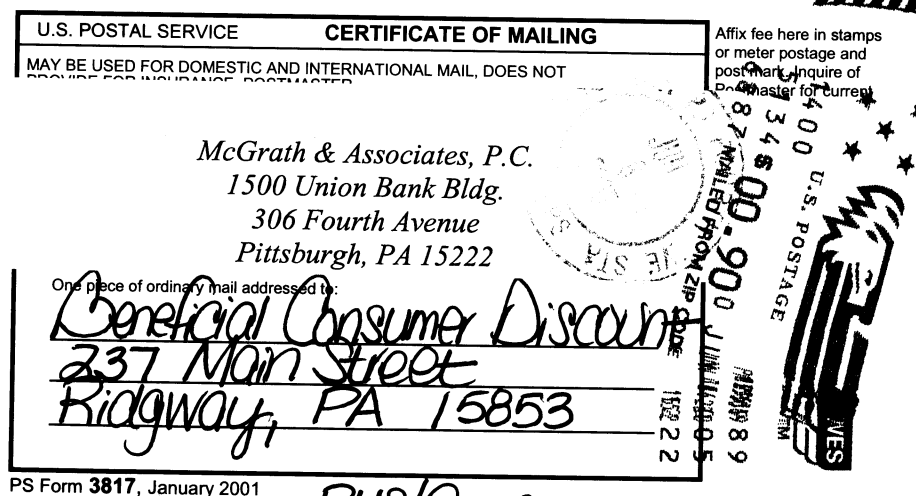 U.S. POSTAL SERVICE CERTIFICATE OF MAILING
MAY BE USED FOR DOMESTIC AND INTERNATIONAL MAIL, DOES NOT
PROVIDE FOR INSURANCE. POSTMASTER
Affix fee here in stamps
or meter postage and
post mark. Inquire of
Postmaster for current
McGrath & Associates, P.C.
1500 Union Bank Bldg.
306 Fourth Avenue
Pittsburgh, PA 15222
One piece of ordinary mail addressed to:
Beneficial Consumer Discount
237 Main Street
Ridgway, PA 15853
PS Form 3817, January 2001
1400 U.S. POSTAGE
5134 $00.900
6887 MAILED FROM ZIP CODE